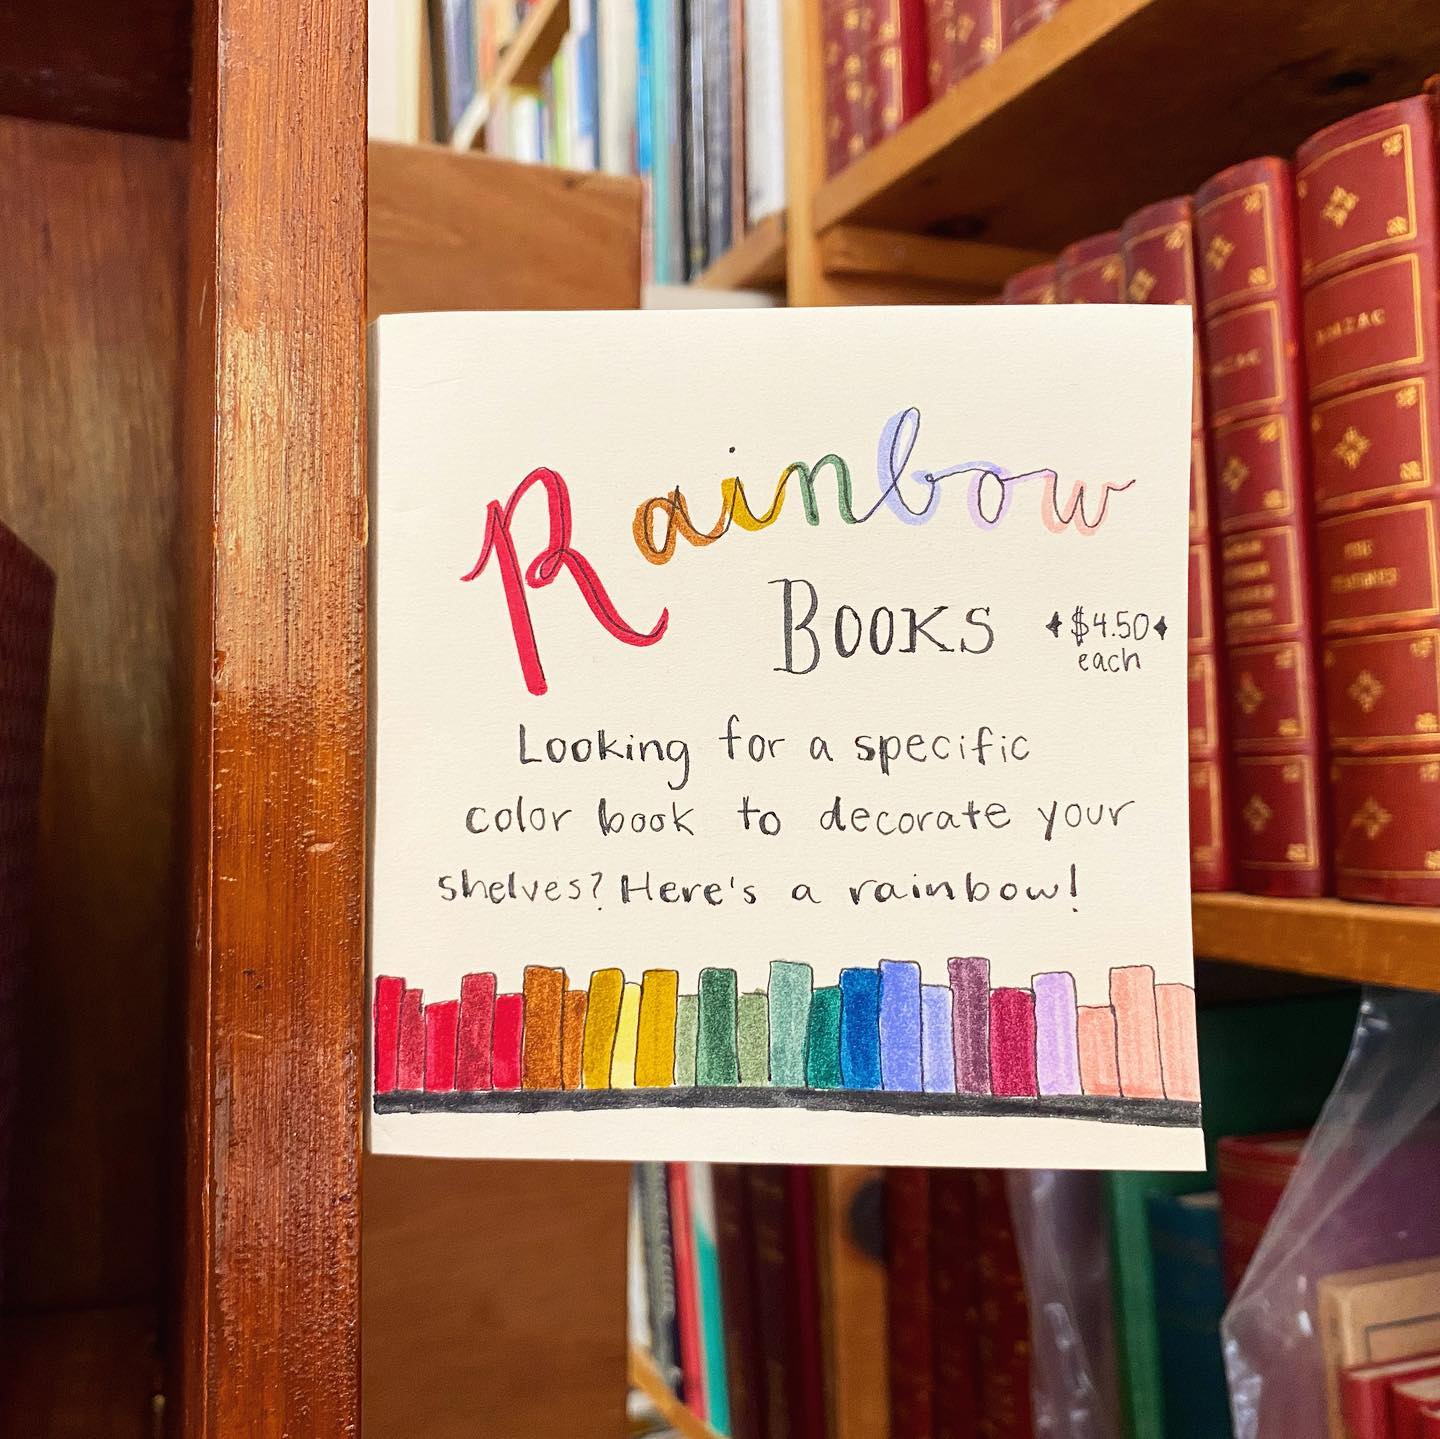 Rainbow
BOOKS
$4.50
each
Looking for a specific
color book to decorate your
shelves? Here's a rainbow!
BALZAC